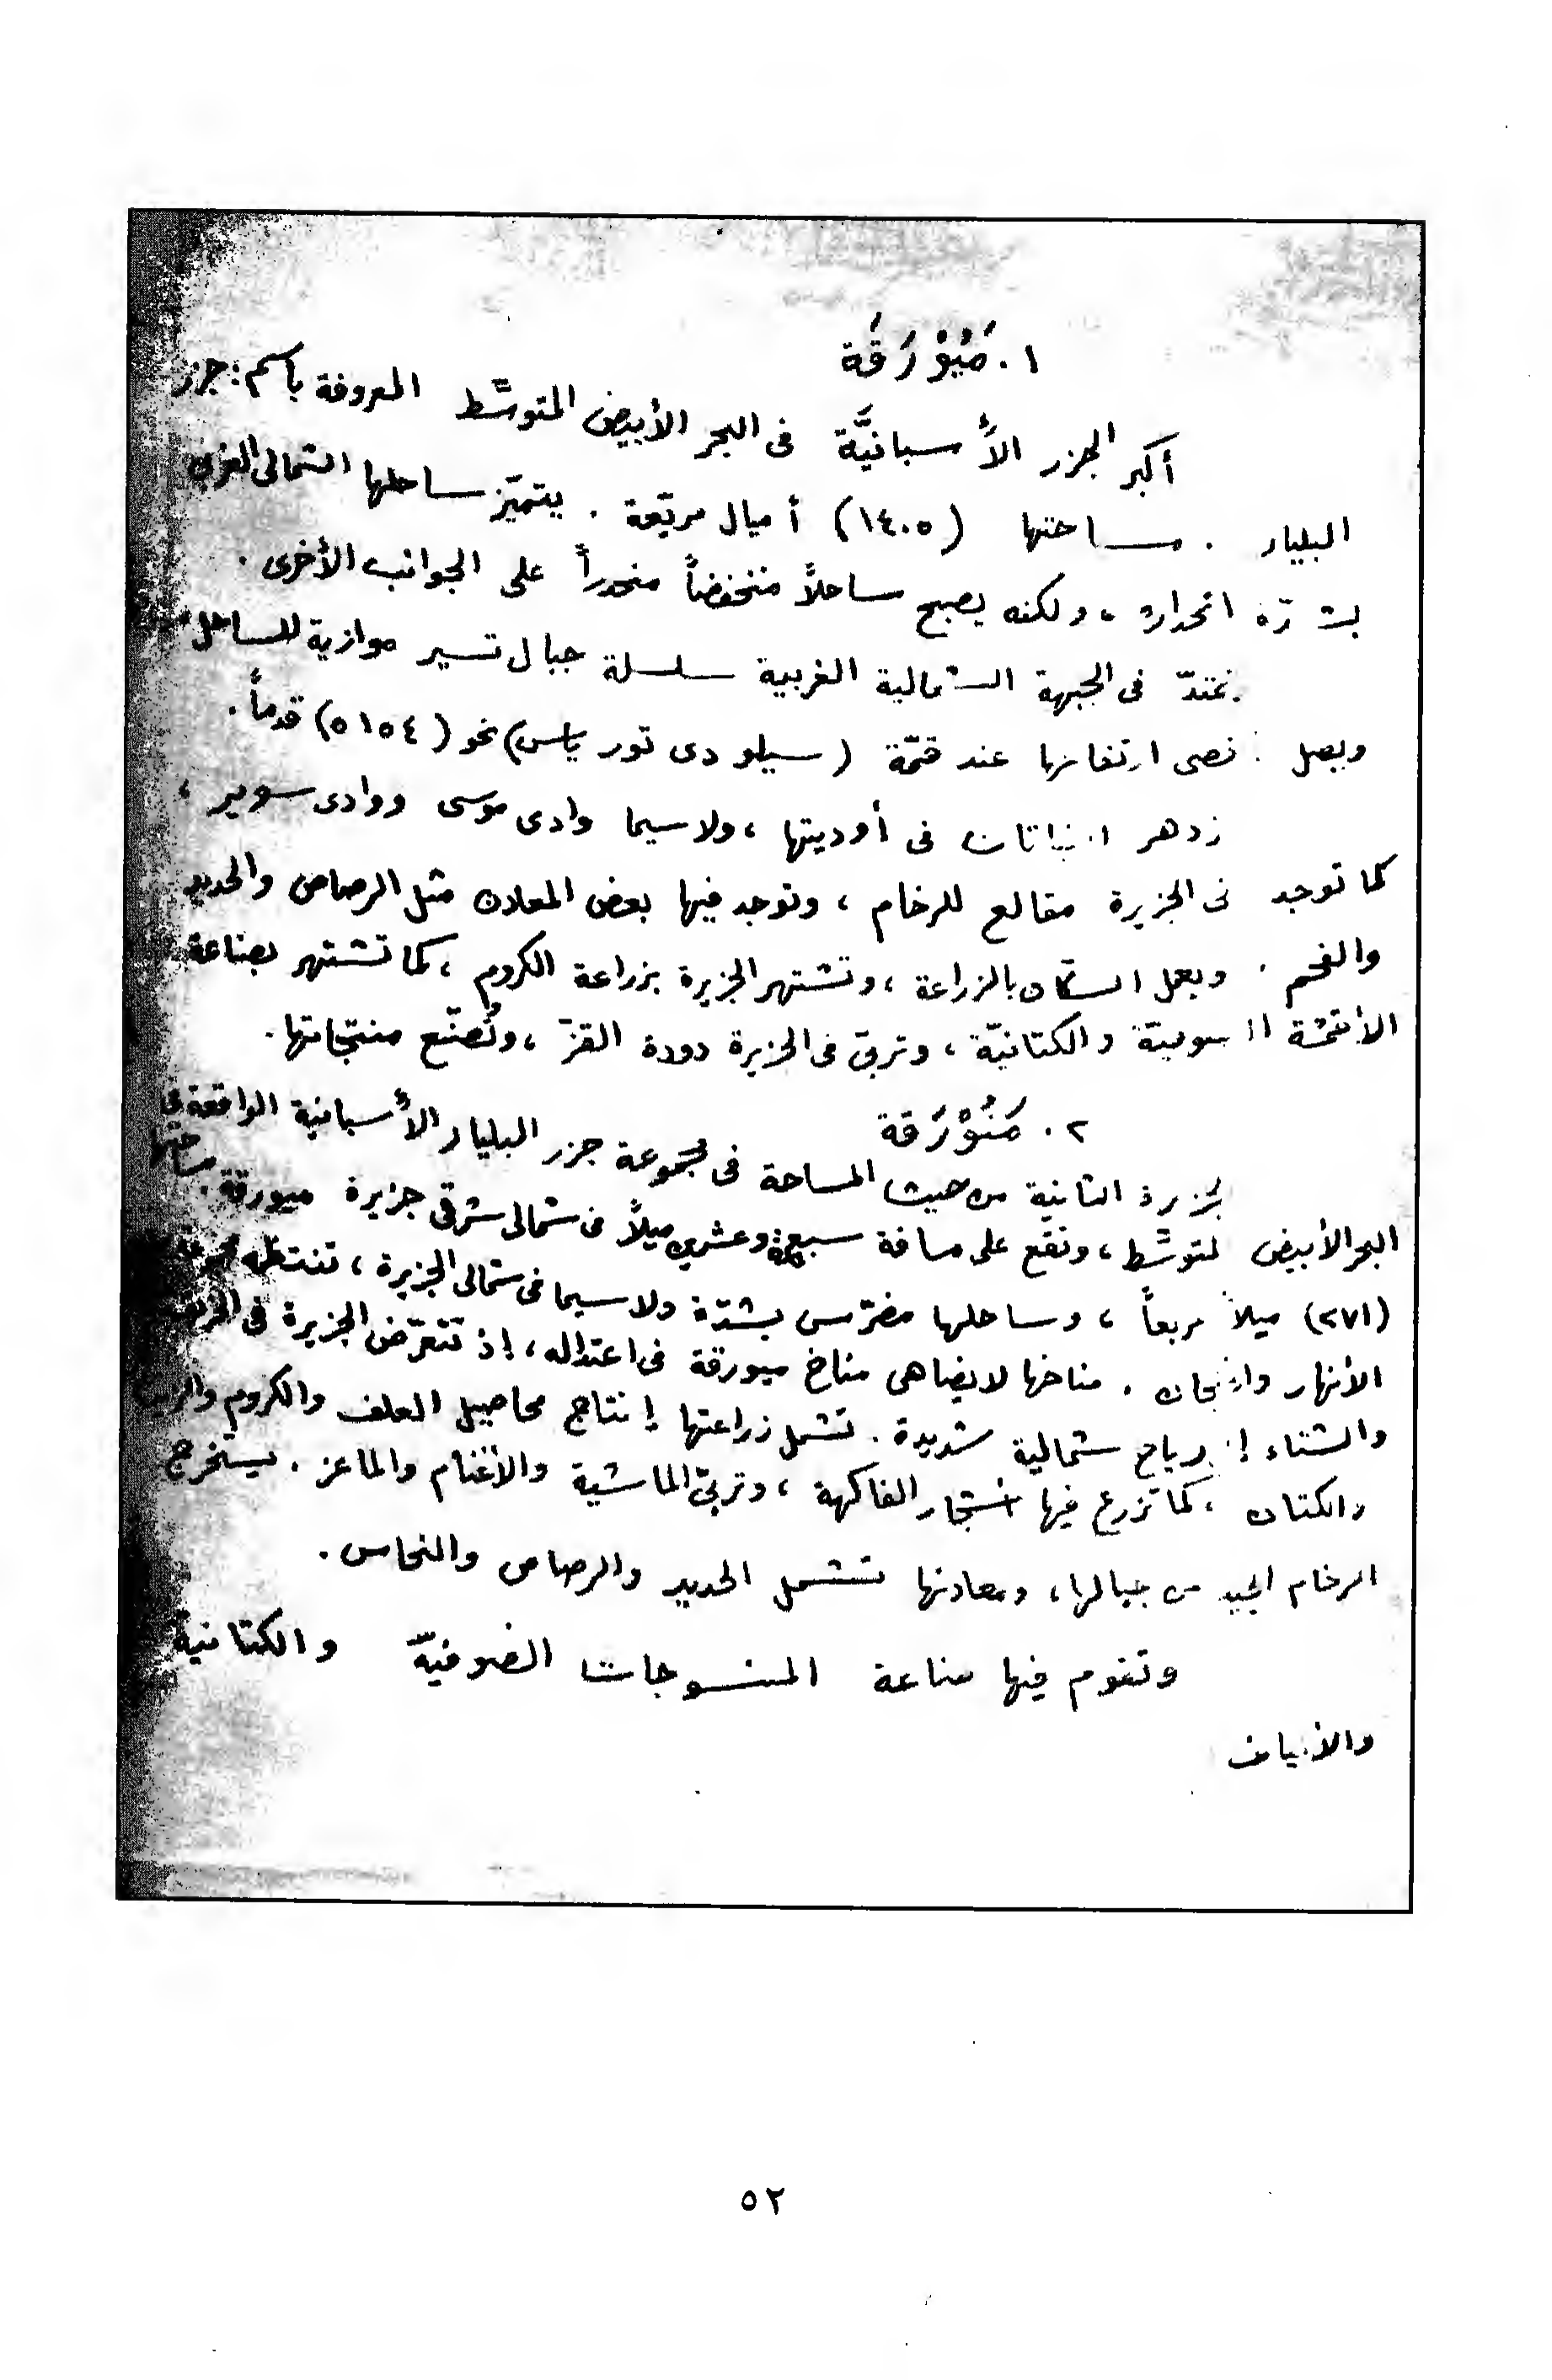 ١. مَيُوْرَقَة
أكبر الجزر الأسبانيَّة فى البحر الأبيض المتوسّط المعروفة باسم: جزر
البليار. مساحتها (١٤٠٥) أميال مربّعة. يتميّز ساحلها الشمالى الغربى
بشدّة انحداره، ولكنه يصبح ساحلاً منخفضاً منحدراً على الجوانب الأخرى.
تمتدّ فى الجبهة الشمالية الغربية سلسلة جبال تسير موازية للساحل
ويصل أقصى ارتفاعها عند قمّة (سيلو دى تور ياس) نحو (٥١٥٤) قدماً.
زدهر النباتات فى أوديتها، ولاسيما وادى موسى ووادى سوير،
كما توجد فى الجزيرة مقالع للرخام، وتوجد فيها بعض المعادن مثل الرصاص والحديد
والفحم. ويعمل السكّان بالزراعة، وتشتهر الجزيرة بزراعة الكروم، كما تشتهر بصناعة
الأقمشة الصوفيّة والكتانيّة، وتربّى فى الجزيرة دودة القزّ، وتُصنّع منتجاتها.
٢. مَنُوْرَقة
الجزيرة الثانية من حيث المساحة فى مجموعة جزر البليار الأسبانية الواقعة فى
البحر الأبيض المتوسّط، وتقع على مسافة سبعة وعشرين ميلاً فى شمالى شرقى جزيرة ميورقة. مساحتها
(٢٧١) ميلاً مربعاً، وساحلها مضرّس بشدّة ولاسيما فى شمالى الجزيرة، تنتظمه مجموعة
الأنهار والخلجان. مناخها لايضاهى مناخ ميورقة فى اعتداله، إذ تتعرّض الجزيرة فى الخريف
والشتاء إلى رياح شمالية شديدة. تشمل زراعتها إنتاج محاصيل العلف والكروم والزيتون
والكتان، كما تزرع فيها أشجار الفاكهة، وتربّى الماشية والأغنام والماعز. يستخرج
الرخام الجيد من جبالها، ومعادنها تشتمل الحديد والرصاص والنحاس.
وتقوم فيها صناعة المنسوجات الصوفيّة والكتانية
والألياف
٥٢